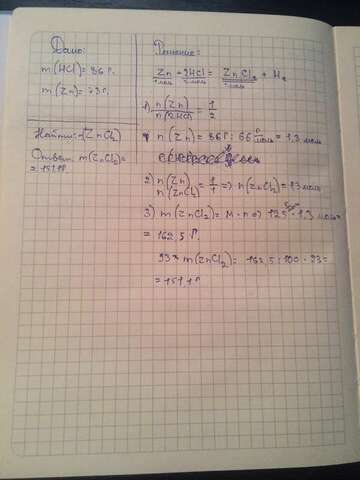 Дано:
m(HCl)= 86 г.
m(Zn)= 73г.
Найти: m(ZnCl₂)
Ответ: m(ZnCl₂)=
= 151,1г.
Решение:
Zn + 2HCl = ZnCl₂ + H₂
1 моль 2 моль 1 моль
1) n(Zn) / n(2HCl) = 1/2
n(Zn) = 86г : 66 г/моль = 1,3 моль
2) n(Zn) / n(ZnCl₂) = 1/1 => n(ZnCl₂) = 1,3 моль
3) m(ZnCl₂) = M · n => 125 · 1,3 моль =
= 162,5 г.
93% m(ZnCl₂) = 162,5 : 100 · 93 =
= 151,1г